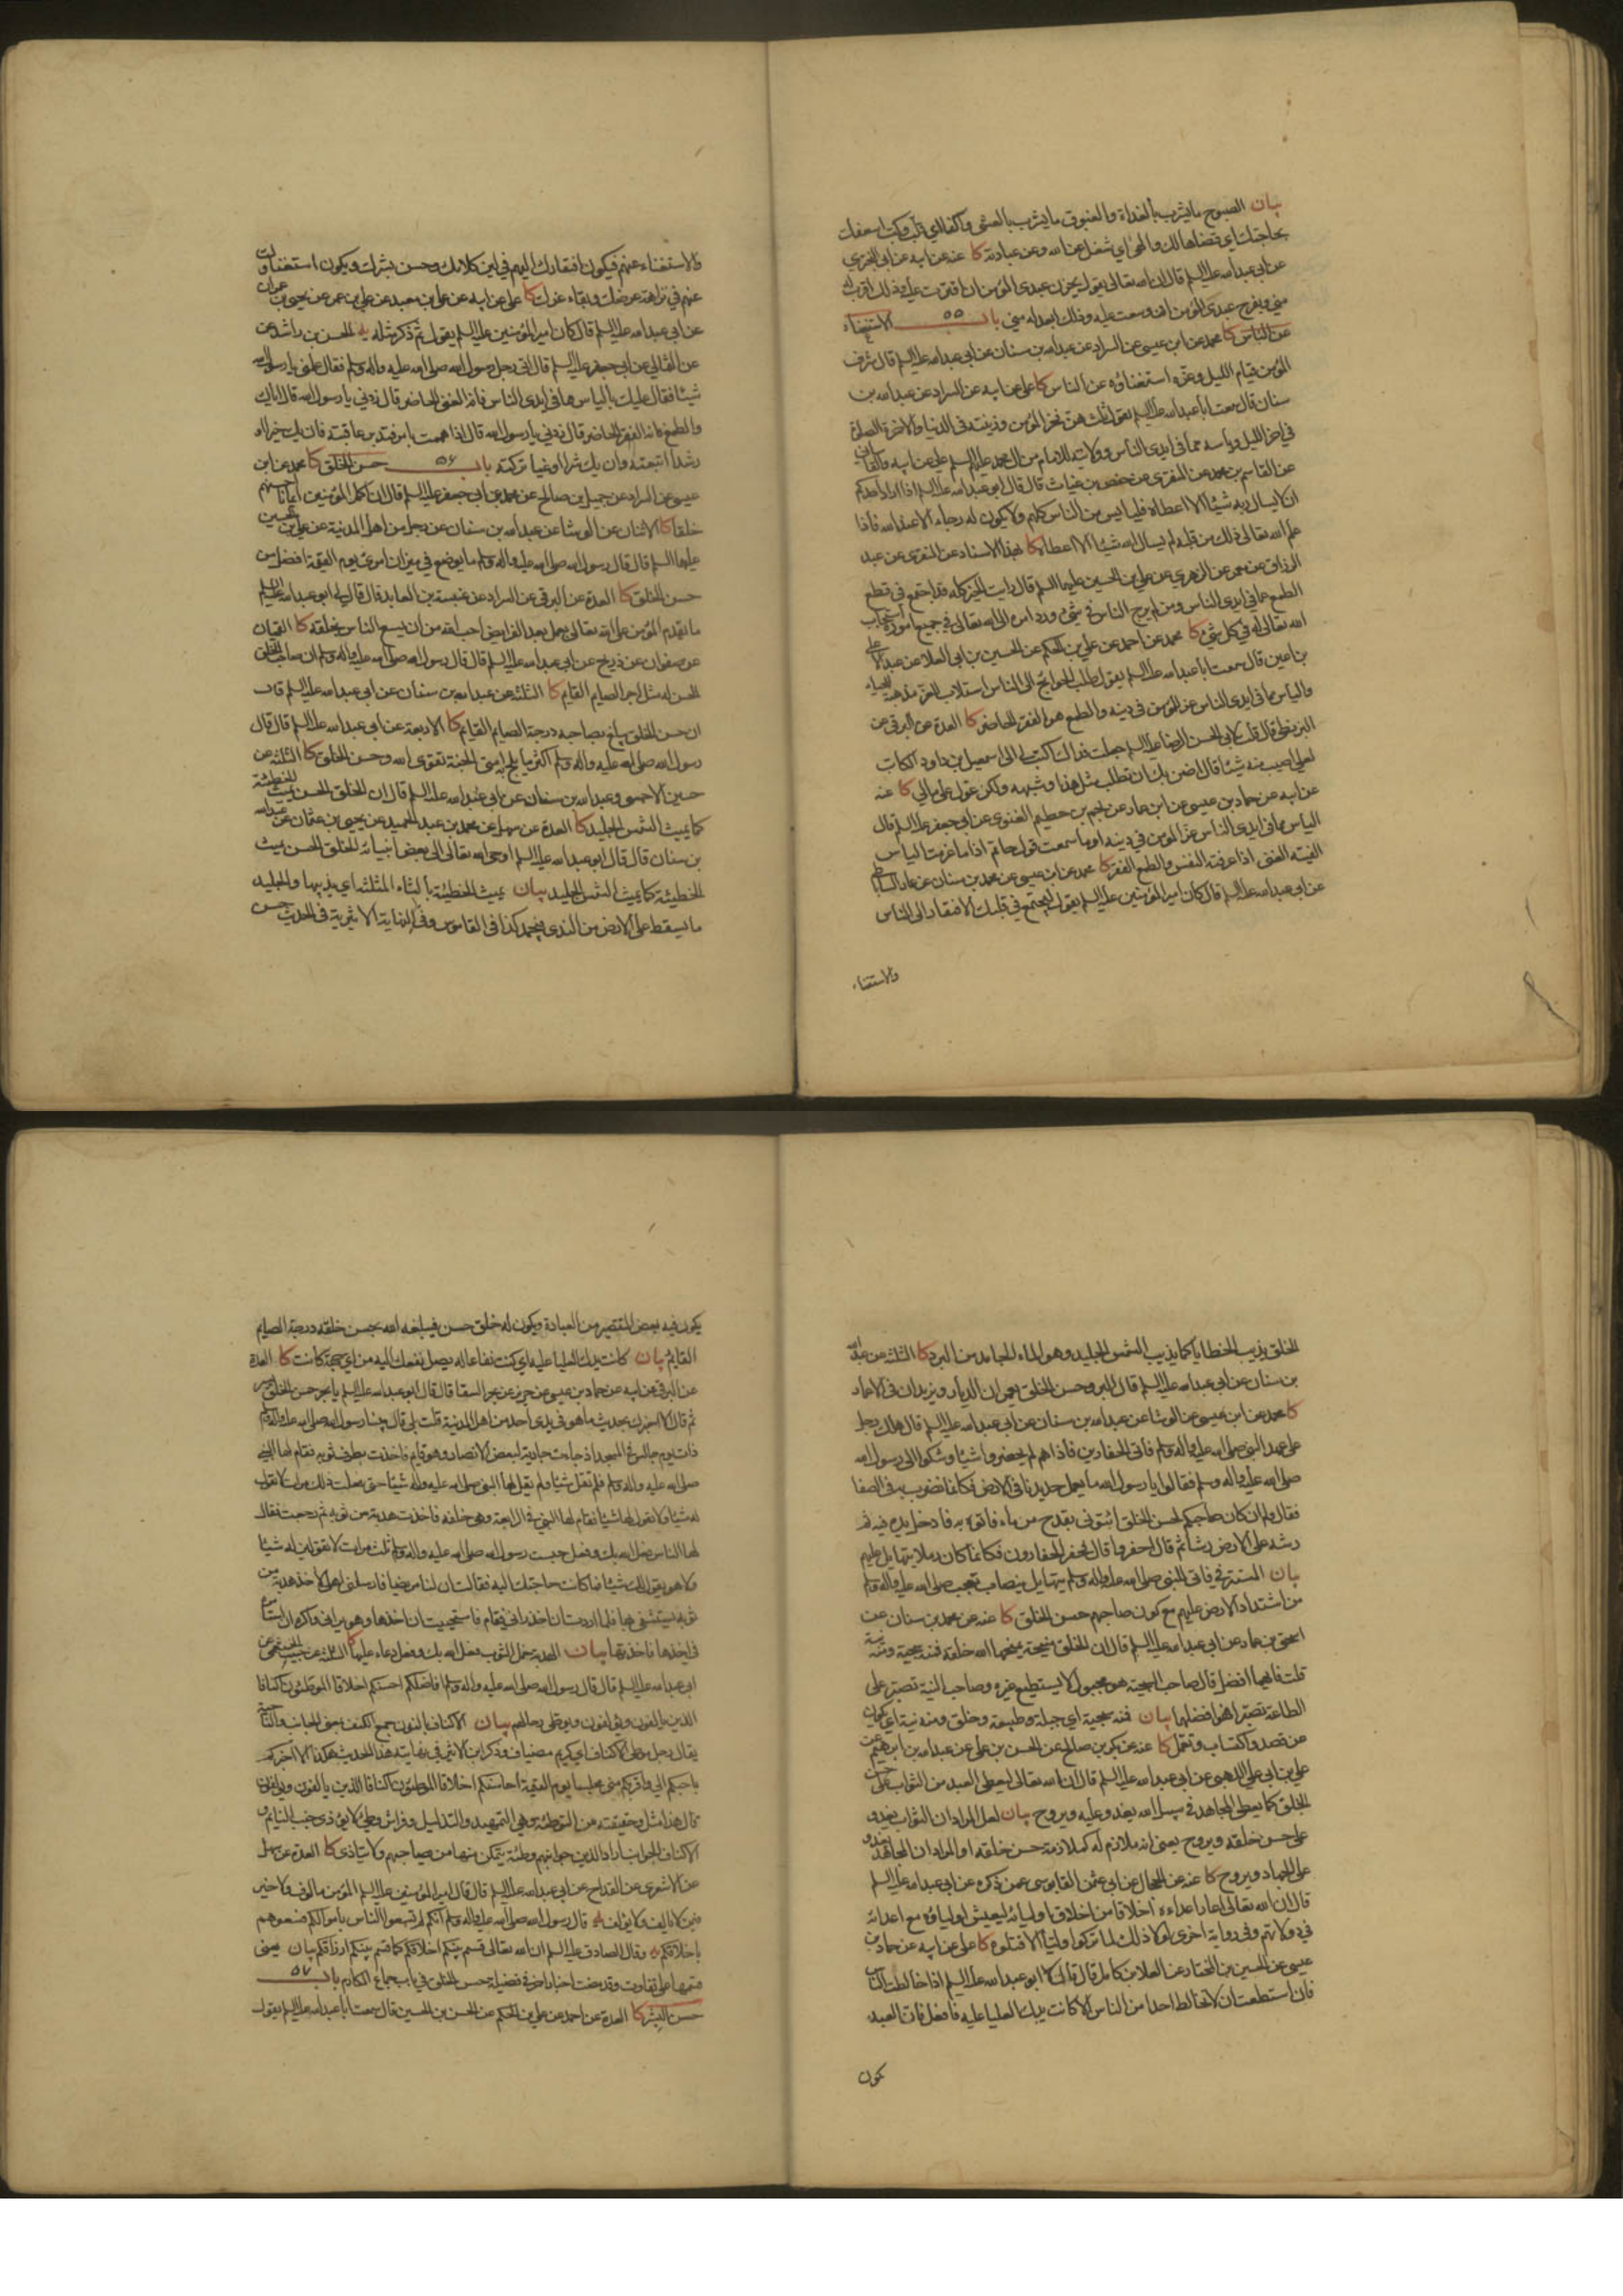 بيان الصبوح ما يشرب بالغداة والغبوق ما يشرب بالعشي
بحاجتك اي قضاها لك والهى اي شغل عن الله وعن عبادته كا عنه عن ابيه عن
عن ابي عبدالله عليه السلم قال ان الله تعالى يقول يحزن عبدى المؤمن ان اقترت عليه وذلك اقرب له
مني ويفرح عبدى المؤمن ان وسعت عليه وذلك ابعد له مني باب ٥٥ الاستغناء
عن الناس كا محمد عن ابن عيسى عن السراد عن عبدالله بن سنان عن ابي عبدالله عليه السلم قال شرف
المؤمن قيام الليل وعزه استغناؤه عن الناس كا على عن ابيه عن السراد عن عبدالله بن
سنان قال سمعت ابا عبدالله عليه السلم يقول ثلث هن فخر المؤمن وزينته في الدنيا والاخرة الصلوة
في اخر الليل وياسه مما في ايدى الناس وولايته للامام من ال محمد عليهم السلم على عن ابيه والقاساني
عن القاسم بن محمد عن المنقرى عن حفص بن غياث قال قال ابو عبدالله عليه السلم اذا اراد احدكم
ان لا يسال ربه شيئا الا اعطاه فليايس من الناس كلهم ولا يكون له رجاء الا عند الله فاذا
علم الله تعالى ذلك من قلبه لم يسال الله شيئا الا اعطاه كا بهذا الاسناد عن المنقرى عن عبد
الرزاق عن معمر عن الزهرى عن على بن الحسين عليهما السلم قال رايت الخير كله قد اجتمع في قطع
الطمع عما في ايدى الناس ومن لم يرج الناس في شيء ورد امره الى الله تعالى في جميع اموره استجاب
الله تعالى له في كل شيء كا محمد عن احمد عن على بن الحكم عن الحسين بن ابي العلا عن عبدالاعلى
بن اعين قال سمعت ابا عبدالله عليه السلم يقول طلب الحوائج الى الناس استلاب للعز مذهبة للحياء
والياس مما في ايدى الناس عز للمؤمن في دينه والطمع هو الفقر الحاضر كا العدة عن البرقى عن
البزنطى قال قلت لابي الحسن الرضا عليه السلم جعلت فداك اكتب لى الى اسمعيل بن داود الكاتب
لعلي اصيب منه شيئا قال اضن بك ان تطلب مثل هذا وشبهه ولكن عول على مالي كا عنه
عن ابيه عن حماد بن عيسى عن ابن عمار عن نجم بن حطيم الغنوى عن ابي جعفر عليه السلم قال
الياس مما في ايدى الناس عز المؤمن في دينه اوما سمعت قول حاتم اذا ما عزمت الياس
الفيته الغنى اذا عرفته النفس والطمع الفقر كا محمد عن ابن عيسى عن محمد بن سنان عن عمار الساباطى
عن ابي عبدالله عليه السلم قال كان امير المؤمنين عليه السلم يقول ليجتمع في قلبك الافتقار الى الناس
والاستغناء
والاستغناء عنهم فيكون افتقارك اليهم في لين كلامك وحسن بشرك ويكون استغناؤك
عنهم في نزاهة عرضك وبقاء عزك كا على عن ابيه عن على بن معبد عن على بن عمر عن يحيى بن عمران
عن ابي عبدالله عليه السلم قال كان امير المؤمنين عليه السلم يقول ثم ذكر مثله يه الحسن بن راشد عن
عن الثمالي عن ابي جعفر عليه السلم قال اتى رجل رسول الله صلى الله عليه واله وسلم فقال علمني يا رسول الله
شيئا فقال عليك بالياس مما في ايدى الناس فانه الغنى الحاضر قال زدني يا رسول الله قال اياك
والطمع فانه الفقر الحاضر قال زدني يا رسول الله قال اذا هممت بامر فتدبر عاقبته فان يك خيرا او
رشدا اتبعته وان يك شرا او غيا تركته باب ٥٦ حسن الخلق كا محمد عن ابن
عيسى عن السراد عن جميل بن صالح عن محمد عن ابي جعفر عليه السلم قال ان اكمل المؤمنين ايمانا احسنهم
خلقا كا الاثنان عن الوشا عن عبدالله بن سنان عن رجل من اهل المدينة عن على بن الحسين
عليهما السلم قال قال رسول الله صلى الله عليه واله وسلم ما يوضع في ميزان امرئ يوم القيمة افضل من
حسن الخلق كا العدة عن البرقى عن السراد عن عنبسة بن العابد قال قال لى ابو عبدالله عليه السلم
ما يقدم المؤمن على الله تعالى بعمل بعد الفرائض احب الى الله من ان يسع الناس بخلقه كا القميان
عن صفوان عن ذريح عن ابي عبدالله عليه السلم قال قال رسول الله صلى الله عليه واله وسلم ان صاحب الخلق
الحسن له مثل اجر الصايم القايم كا الثلثة عن عبدالله بن سنان عن ابي عبدالله عليه السلم قال
ان حسن الخلق يبلغ بصاحبه درجة الصايم القايم كا الاربعة عن ابي عبدالله عليه السلم قال قال
رسول الله صلى الله عليه واله وسلم اكثر ما يلج به امتى الجنة تقوى الله وحسن الخلق كا الثلثة عن
حسين الاحمسى وعبدالله بن سنان عن ابي عبدالله عليه السلم قال ان الخلق الحسن يميث الخطيئة
كما يميث الشمس الجليد كا العدة عن سهل عن محمد بن عبدالحميد عن يحيى بن عثمان عن عبدالله
بن سنان قال قال ابو عبدالله عليه السلم اوحى الله تعالى الى بعض انبيائه الخلق الحسن يميث
الخطيئة كما يميث الشمس الجليد بيان يميث الخطيئة بالثاء المثلثة اي يذيبها والجليد
ما يسقط على الارض من الندى فيجمد كذا في القاموس وفي النهاية الاثيرية في الحديث حسن
الخلق يذيب الخطايا كما يذيب الشمس الجليد وهو الماء الجامد من البرد كا الثلثة عن عبدالله
بن سنان عن ابي عبدالله عليه السلم قال البر وحسن الخلق يعمران الديار ويزيدان في الاعمار
كا محمد عن ابن عيسى عن الوشا عن عبدالله بن سنان عن ابي عبدالله عليه السلم قال هلك رجل
على عهد النبي صلى الله عليه واله وسلم فاتى الحفارين فاذا هم لم يحفروا شيئا وشكوا الى رسول الله
صلى الله عليه واله وسلم فقالوا يا رسول الله ما يعمل حديدنا في الارض فكانما نضرب به في الصفا
فقال ولم ان كان صاحبكم لحسن الخلق ائتوني بقدح من ماء فاتوه به فادخل يده فيه ثم
رشه على الارض رشا ثم قال احفروا قال فحفر الحفارون فكانما كان رملا يتهايل عليهم
بيان المستتر في فاتى للنبي صلى الله عليه واله وسلم يتهايل ينصب تعجب صلى الله عليه واله وسلم
من اشتداد الارض عليهم مع كون صاحبهم حسن الخلق كا عنه عن محمد بن سنان عن
اسحق بن عمار عن ابي عبدالله عليه السلم قال ان الخلق منيحة يمنحها الله خلقه فمنه سجية ومنه نية
قلت فايهما افضل قال صاحب السجية هو مجبول لا يستطيع غيره وصاحب النية تصبر على
الطاعة تصبرا فهو افضلهما بيان فمنه سجية اي جبلة وطبيعة وخلق ومنه نية اي يكون
عن قصد واكتساب وتعمل كا عنه عن بكر بن صالح عن الحسن بن على عن عبدالله بن ابرهيم عن
على بن ابي على اللهبي عن ابي عبدالله عليه السلم قال ان الله تعالى ليعطى العبد من الثواب على حسن
الخلق كما يعطى المجاهد في سبيل الله يغدو عليه ويروح بيان لعل المراد ان الثواب يغدو
على حسن خلقه ويروح يعنى انه ملازم له كملازمة حسن خلقه او المراد ان المجاهد يغدو
على الجهاد ويروح كا عنه عن الحجال عن ابي عثمن القابوسى عمن ذكره عن ابي عبدالله عليه السلم
قال ان الله تعالى اعار اعداءه اخلاقا من اخلاق اوليائه ليعيش اولياؤه مع اعدائه
في دولاتهم وفي رواية اخرى لولا ذلك لما تركوا وليا لله الا قتلوه كا على عن ابيه عن حماد بن
عيسى عن الحسين بن المختار عن العلا بن كامل قال قال ابو عبدالله عليه السلم اذا خالطت الناس
فان استطعت ان لا تخالط احدا من الناس الا كانت يدك العليا عليه فافعل فان العبد
يكون
يكون فيه بعض التقصير من العبادة ويكون له خلق حسن فيبلغه الله بحسن خلقه درجة الصايم
القايم بيان كانت يدك العليا عليه اي كنت نفاعا له يصل نفعك اليه من اي جهة كانت كا العدة
عن البرقى عن ابيه عن حماد بن عيسى عن حريز عن بحر السقا قال قال ابو عبدالله عليه السلم يا بحر حسن الخلق يسر
ثم قال الا اخبرك بحديث ما هو في يدى احد من اهل المدينة قلت بلى قال بينا رسول الله صلى الله عليه واله وسلم
ذات يوم جالس في المسجد اذ جاءت جارية لبعض الانصار وهو قايم فاخذت بطرف ثوبه فقام لها النبي
صلى الله عليه واله وسلم فلم تقل شيئا ولم يقل لها النبي صلى الله عليه واله شيئا حتى فعلت ذلك مرات لا تقول
له شيئا ولا يقول لها شيئا فقام لها النبي في الرابعة وهى خلفه فاخذت هدبة من ثوبه ثم رجعت فقال
لها الناس فعل الله بك وفعل حبست رسول الله صلى الله عليه واله وسلم ثلث مرات لا تقولين له شيئا
ولا هو يقول لك شيئا ما كانت حاجتك اليه فقالت ان لنا مريضا فارسلنى اهلى لاخذ هدبة من
ثوبه يستشفى بها فلما اردت ان اخذ رانى فقام فاستحييت ان اخذها وهو يرانى واكره ان استامره
في اخذها فاخذتها بيان الهدبة خمل الثوب وفعل الله بك وفعل دعاء عليها كا الثلثة عن حبيب الخثعمى عن
ابي عبدالله عليه السلم قال قال رسول الله صلى الله عليه واله وسلم افاضلكم احسنكم اخلاقا الموطئون اكنافا
الذين يالفون ويؤلفون وتوطى رحالهم بيان الاكناف بالنون جمع الكنف بمعنى الجانب والناحية
يقال رجل موطى الاكناف اي كريم مضياف وذكر ابن الاثير في نهايته هذا الحديث هكذا الا اخبركم
باحبكم الى واقربكم منى مجلسا يوم القيمة احاسنكم اخلاقا الموطئون اكنافا الذين يالفون ويؤلفون
قال هذا مثل وحقيقته من التوطئة وهى التمهيد والتذليل وفراش وطئ لا يؤذى جنب النايم و
الاكناف الجوانب اراد الذين جوانبهم وطئة يتمكن منها من يصاحبهم ولا يتاذى كا العدة عن سهل
عن الاشعرى عن القداح عن ابي عبدالله عليه السلم قال قال امير المؤمنين عليه السلم المؤمن مالوف ولا خير
فيمن لا يالف ولا يؤلف يه قال رسول الله صلى الله عليه واله وسلم انكم لن تسعوا الناس باموالكم فسعوهم
باخلاقكم يه وقال الصادق عليه السلم ان الله تعالى قسم بينكم اخلاقكم كما قسم بينكم ارزاقكم بيان يعنى
قسمها على تفاوت وقد مضت اخبار اخر في فضيلة حسن الخلق في باب جماع المكارم باب ٥٧
حسن البشر كا العدة عن احمد عن على بن الحكم عن الحسن بن الحسين قال سمعت ابا عبدالله عليه السلم يقول